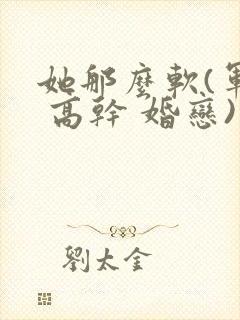 她那麼軟(軍
高幹 婚戀)
劉太金